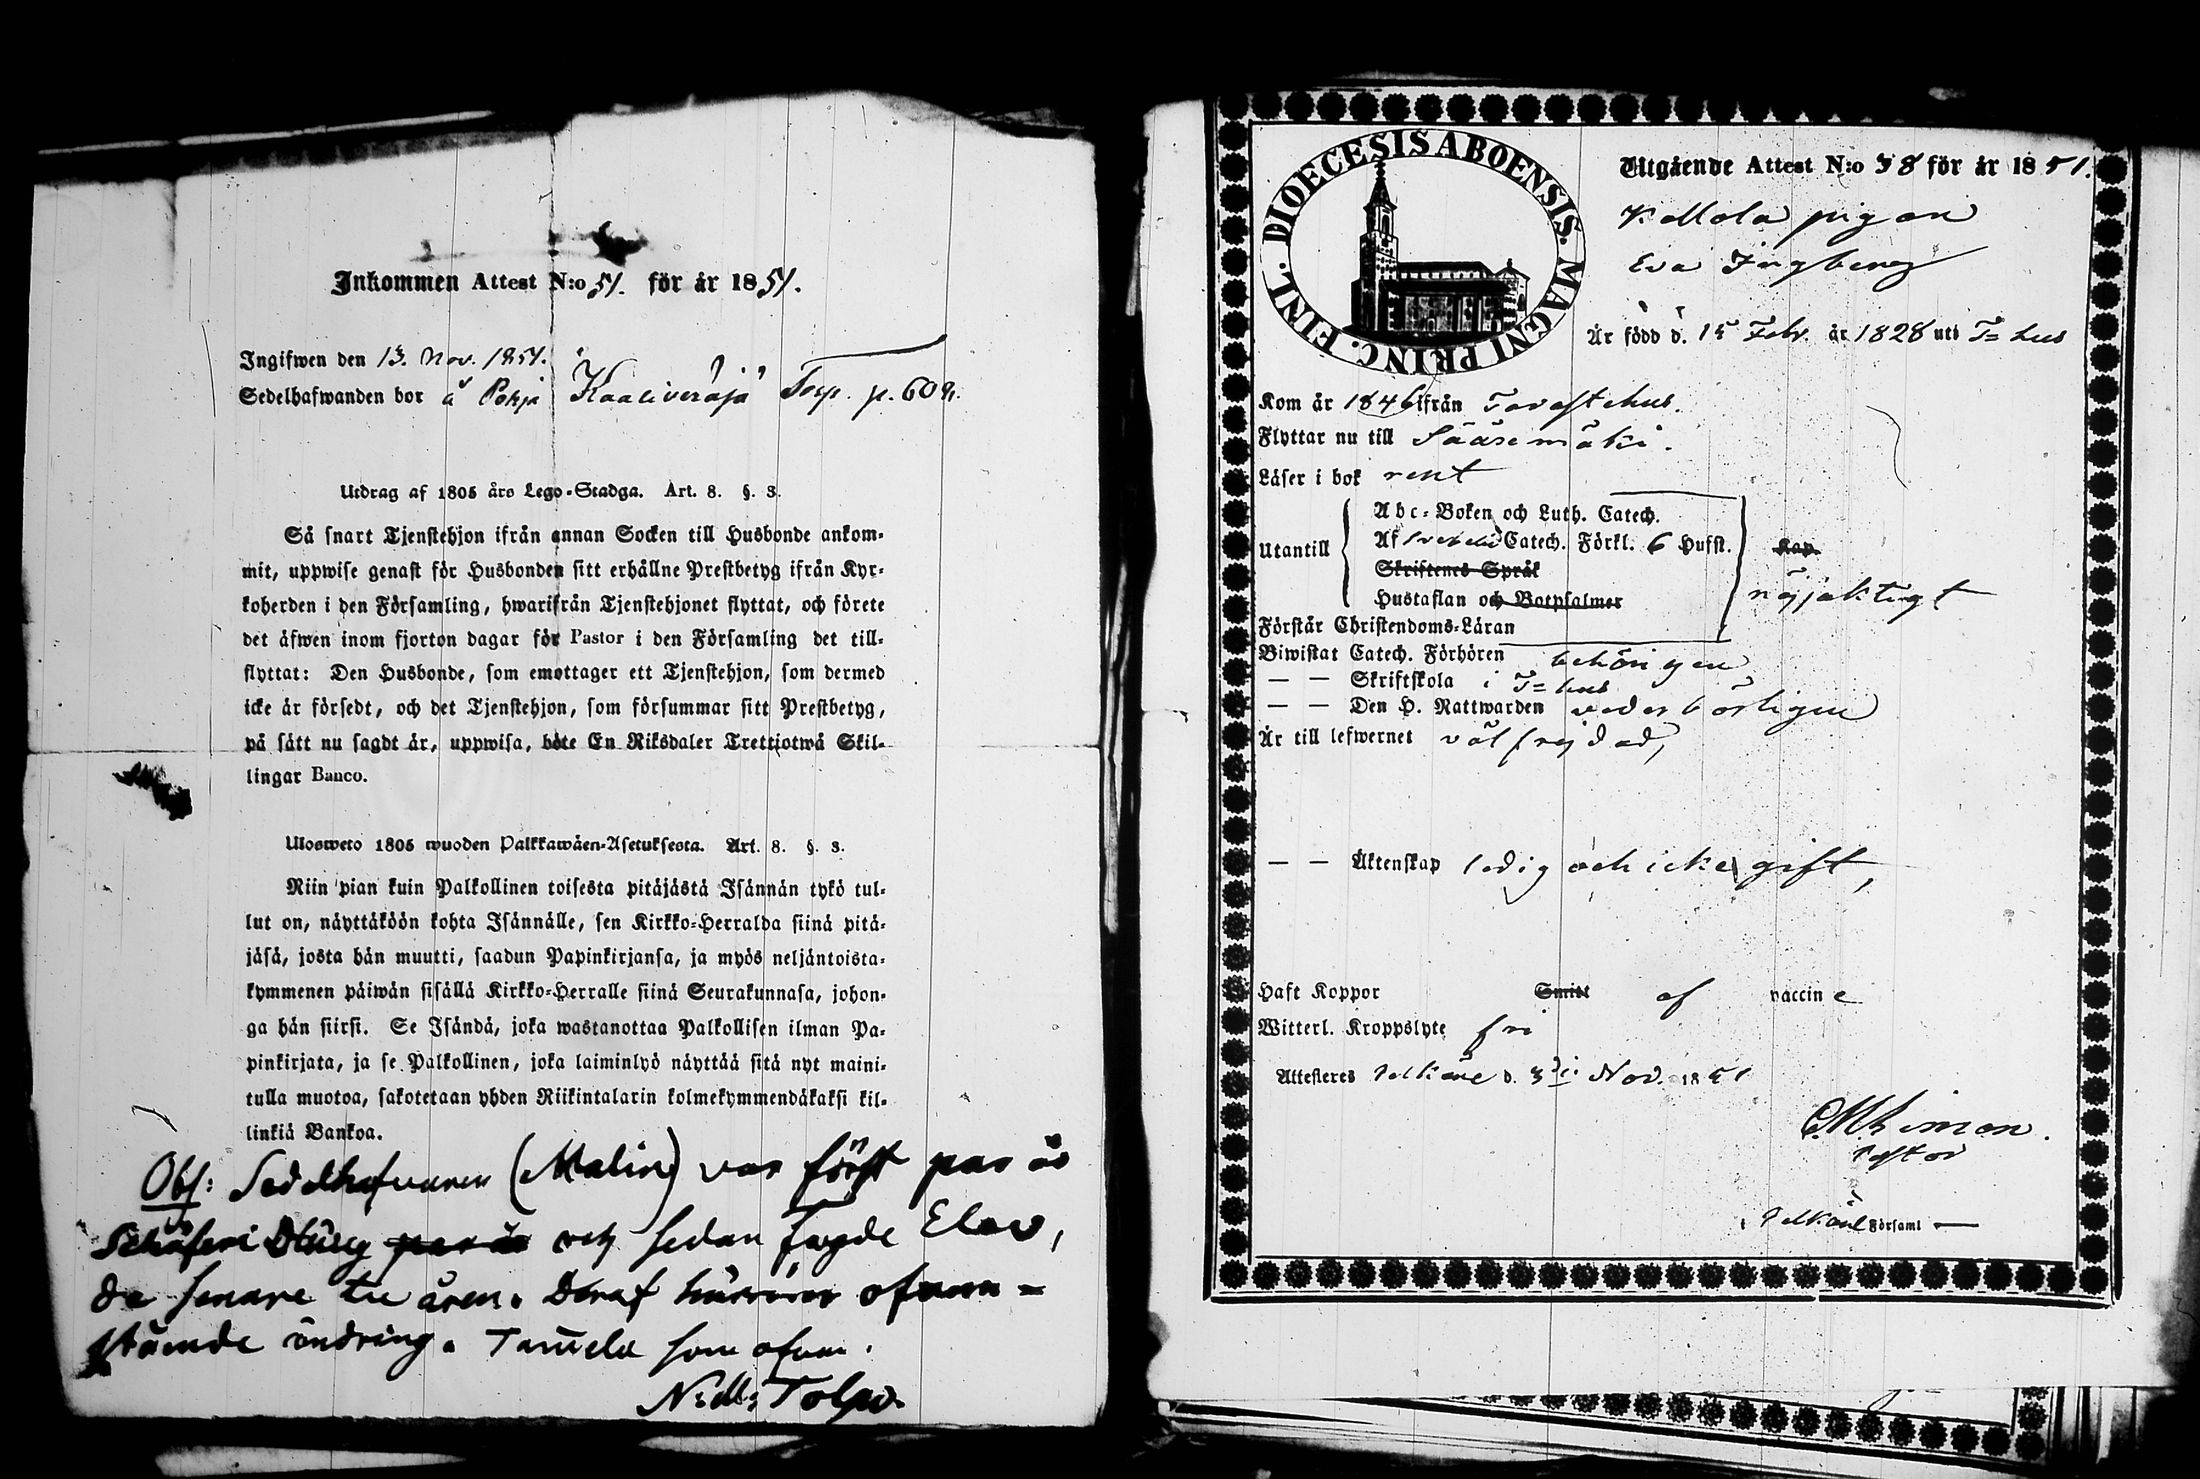 Inkommen Attest N:o 51. för år 1851.
Ingifwen den 13. Nov. 1851.
Sedelhafwanden bor å Pohja Torp. p. 609.
Utdrag af 1805 års Lego-Stadga. Art. 8. §. 3.
Så snart Tjenstehjon ifrån annan Socken till Husbonde ankom-
mit, uppwise genast för Husbonden sitt erhållne Prestbetyg ifrån Kyr-
koherden i den Församling, hwarifrån Tjenstehjonet flyttat, och förete
det äfwen inom fjorton dagar för Pastor i den Församling det till-
flyttat: Den Husbonde, som emottager ett Tjenstehjon, som dermed
icke är försedt, och det Tjenstehjon, som försummar sitt Prestbetyg,
på sätt nu sagdt är, uppwisa, böte En Riksdaler Trettiotwå Skil-
lingar Banco.
Ulosweto 1805 wuoden Palkkawäen-Asetuksesta. Art. 8. §. 3.
Niin pian kuin Palkollinen toisesta pitäjästä Isännän tykö tul-
lut on, näyttäköön kohta Isännälle, sen Kirkko-Herralda siinä pitä-
jäsä, josta hän muutti, saadun Papinkirjansa, ja myös neljäntoista-
kymmenen päiwän sisällä Kirkko-Herralle siinä Seurakunnasa, johon-
ga hän siirsi. Se Isändä, joka wastanottaa Palkollisen ilman Pa-
pinkirjata, ja se Palkollinen, joka laiminlyö näyttää sitä nyt maini-
tulla muotoa, sakotetaan yhden Riikintalarin kolmekymmendäkaksi kil-
linkiä Bankoa.
Obs: Sedelhafvaren (Malin) var först par år
och sedan
de senare tre åren. Deraf ofvan-
stående ändring. som ofvan.
DIOECESIS ABOENSIS. MAGNI PRINC. FINL.
Utgående Attest N:o 38 för år 1851.
pigan
Eva Ingberg
Är född d. 15 Febr. år 1828 uti T=hus
Kom år 1846 ifrån Tavastehus.
Flyttar nu till Sääxmäki.
Läser i bok rent
Utantill
Abc-Boken och Luth. Catech.
Af Catech. Förkl. 6 Hufst. Kap.
Skriftenes Språk
Hustaflan och Botpsalmer
nöjaktigt
Förstår Christendoms-Läran
Biwistat Catech. Förhören behörigen
— — Skriftskola i T=hus
— — Den H. Nattwarden vederbörligen
Är till lefwernet välfrejdad,
— — Äktenskap ledig och icke gift,
Haft Koppor Smitt af vaccine
Witterl. Kroppslyte fri
Attesteres Pelkäne d. 3 Nov. 1851
Pastor
i Pelkäne Församl